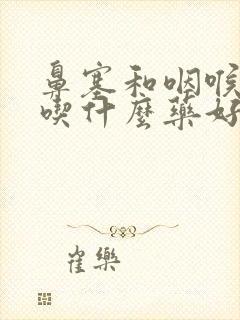 鼻塞和咽喉
喫什麼藥好
崔樂